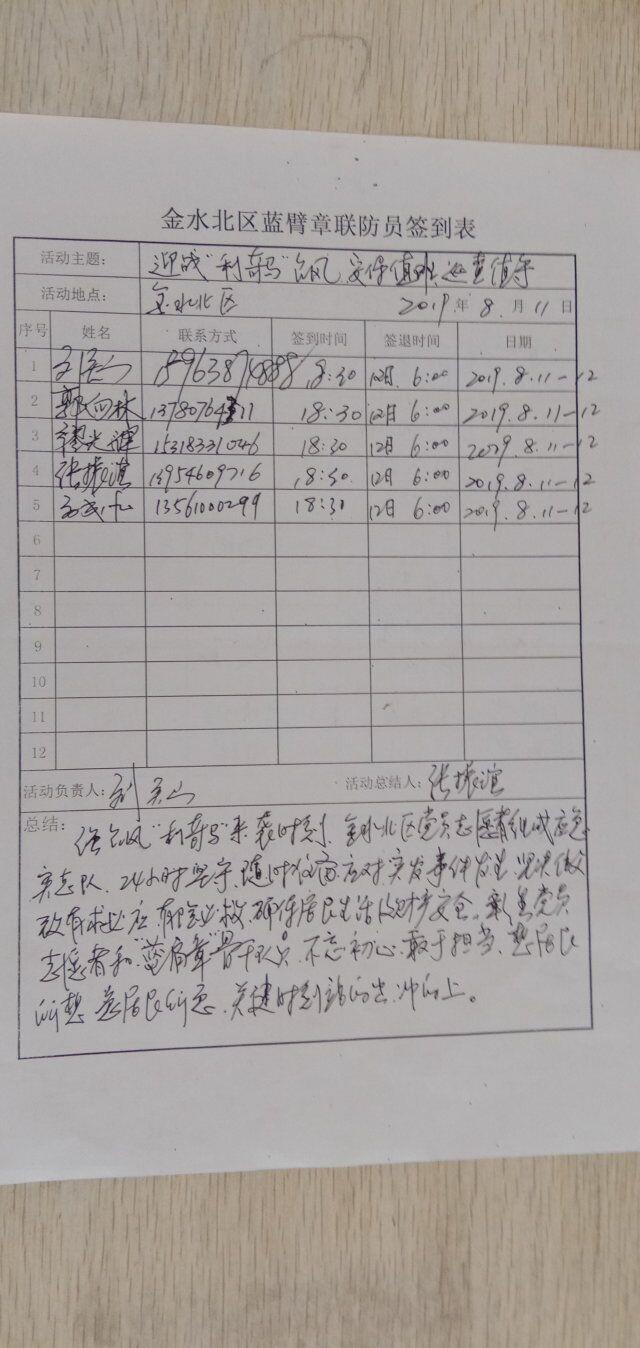 金水北区蓝臂章联防员签到表
活动主题： 迎战“利奇马”台风 安保值班 巡查值守
活动地点： 金水北区 2019年 8 月 11 日
序号 姓名 联系方式 签到时间 签退时间 日期
1 15963874888 18:30 12日 6:00 2019.8.11-12
2 郭向林 18:30 12日 6:00 2019.8.11-12
3 15318331046 18:30 12日 6:00 2019.8.11-12
4 张振谊 13954609716 18:30 12日 6:00 2019.8.11-12
5 13561000299 18:30 12日 6:00 2019.8.11-12
6
7
8
9
10
11
12
活动负责人： 活动总结人： 张振谊
总结： 强台风“利奇马”来袭时刻，金水北区党员志愿者组成应急
突击队，24小时坚守，随时准备应对突发事件发生，坚决做
到有求必应，有险必救，确保居民生活及财产安全。彰显党员
志愿者和“蓝臂章”骨干队员，不忘初心，敢于担当，想居民
所想，急居民所急，关键时刻站的出，冲的上。